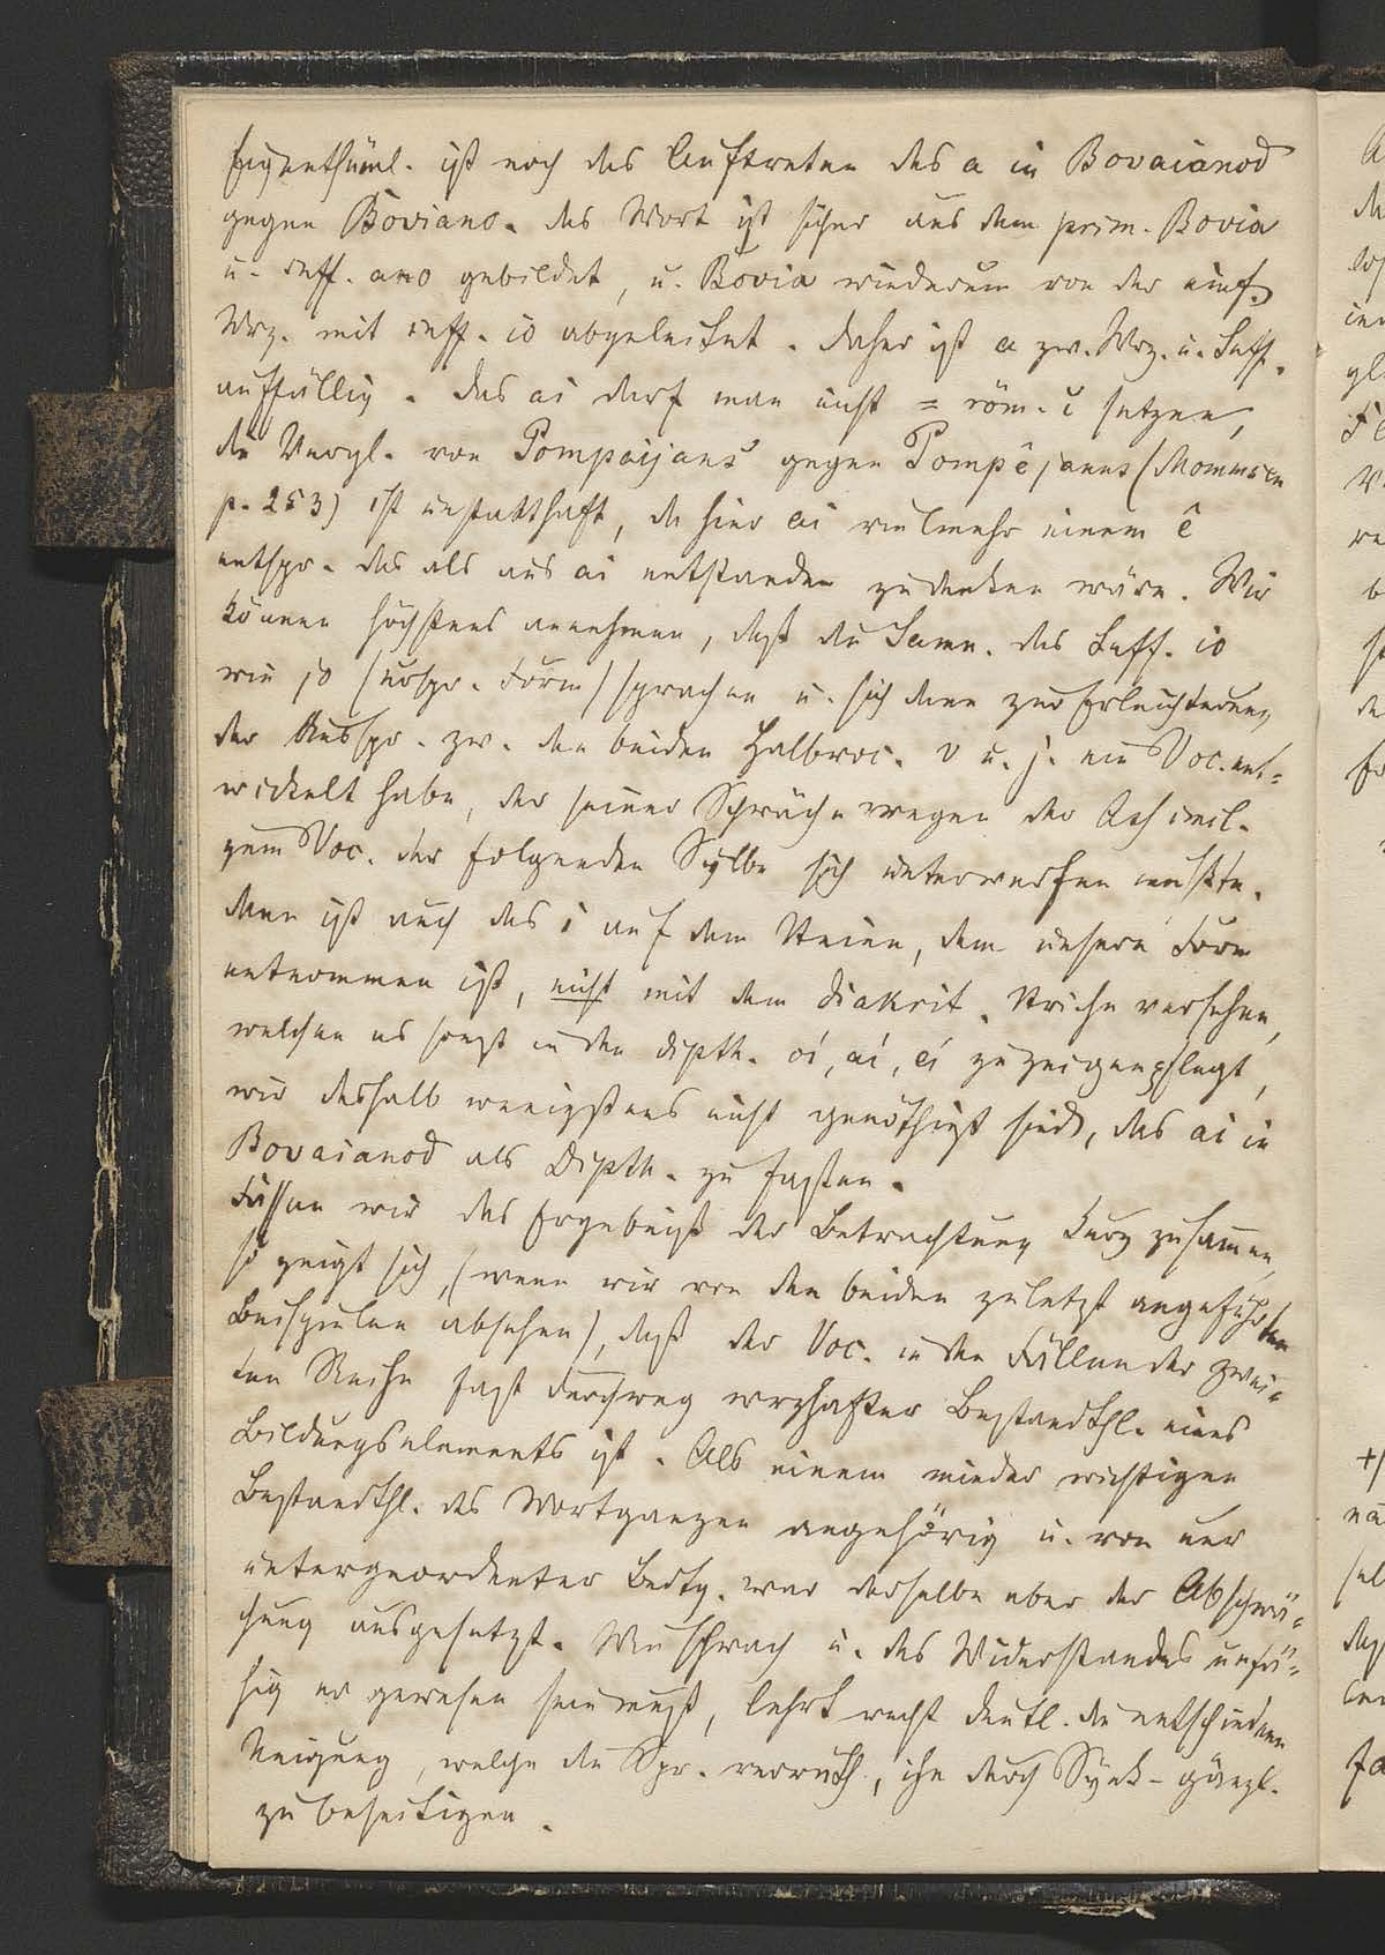 Eigenthüml. ist noch das Auftreten des a in Bovaianod
gegen Boviano. das Wort ist sicher aus dem prim. Bovia
u. suff. ano gebildet, u. Bovia wiederum von der einf.
Wrz. mit suff. io abgeleitet. daher ist a zw. Wrz. u. Suff.
auffällig. das ai darf man nicht = röm. i setzen,
die Vergl. von Pompaijans gegen Pompêjanus (Mommsen
p. 253) ist unstatthaft, da hier ai vielmehr einem ê
entspr. das als aus ai entstanden zu denken wäre. Wir
können höchstens annehmen, daß die Samn. das Suff. io
wie jo (urspr. Form) sprachen u. sich dann zur Erleichterung
der Ausspr. zw. den beiden Halbvoc. v u. j. ein Voc. ent=
wickelt habe, der seiner Schwäche wegen der Assimil.
zum Voc. der folgenden Sylbe sich unterwerfen mußte.
dann ist auch das i auf dem Steine, dem unsere Form
entnommen ist, nicht mit dem diakrit. Striche versehen,
welchen es sonst in den dipth. oí, aí, eí zu zeigen pflegt,
wir deshalb wenigstens nicht genöthigt sind, das ai in
Bovaianod als Dipth. zu fassen.
Fassen wir das Ergebniß der Betrachtung kurz zusammen,
so zeigt sich, (wenn wir von den beiden zuletzt angeführten
Beispielen absehen), daß der Voc. in den Fällen der zwei=
ten Reihe fast durchweg wrzhafter Bestandthl. eines
Bildungselements ist. Als einem minder wichtigen
Bestandthl. des Wortganzen angehörig u. von nur
untergeordneter Bedtg. war derselbe aber der Abschwä=
chung ausgesetzt. Wie schwach u. des Widerstandes unfä=
hig er gewesen sein muß, lehrt recht deutl. die entschiedene
Neigung, welche die Spr. verräth, ihn durch Synk. gänzl.
zu beseitigen.